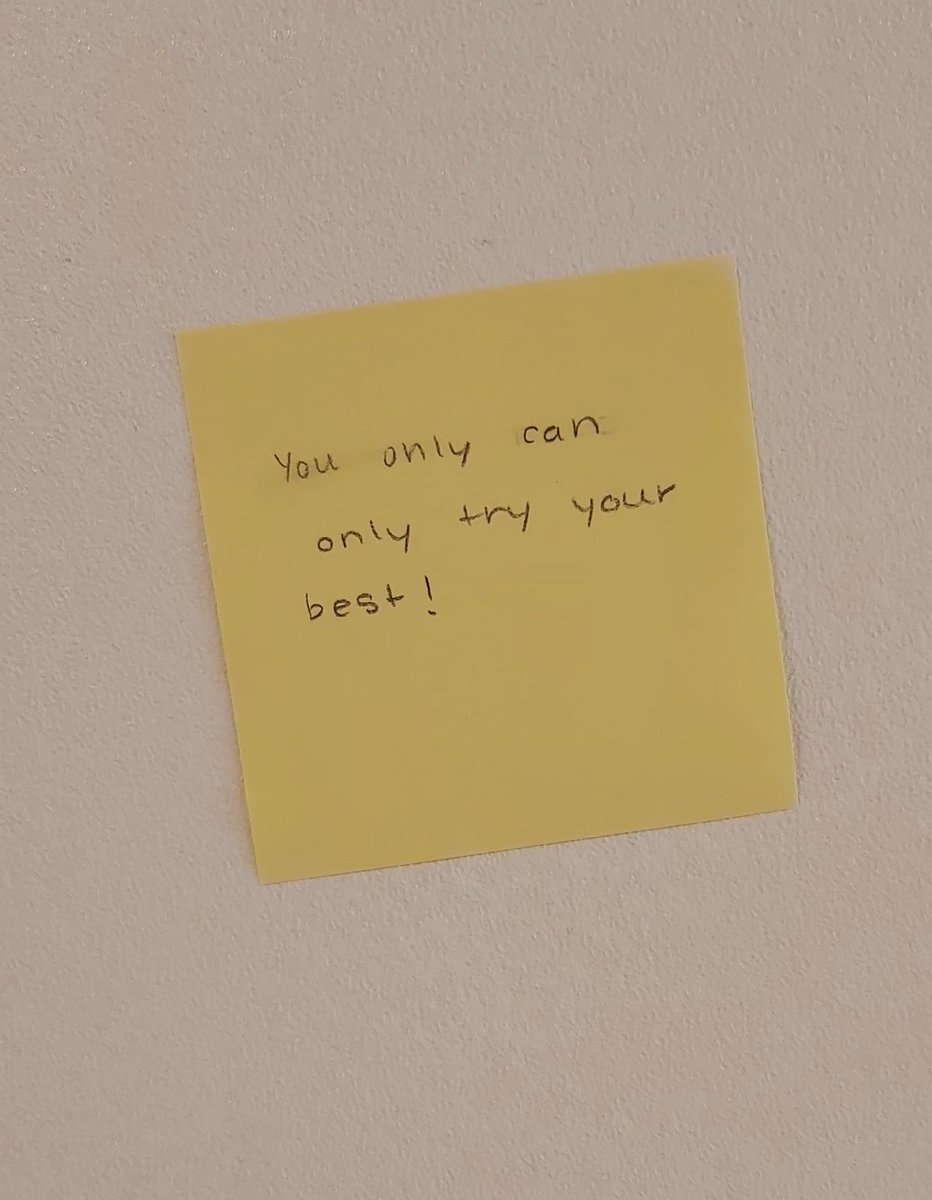 You only can
only try your
best!